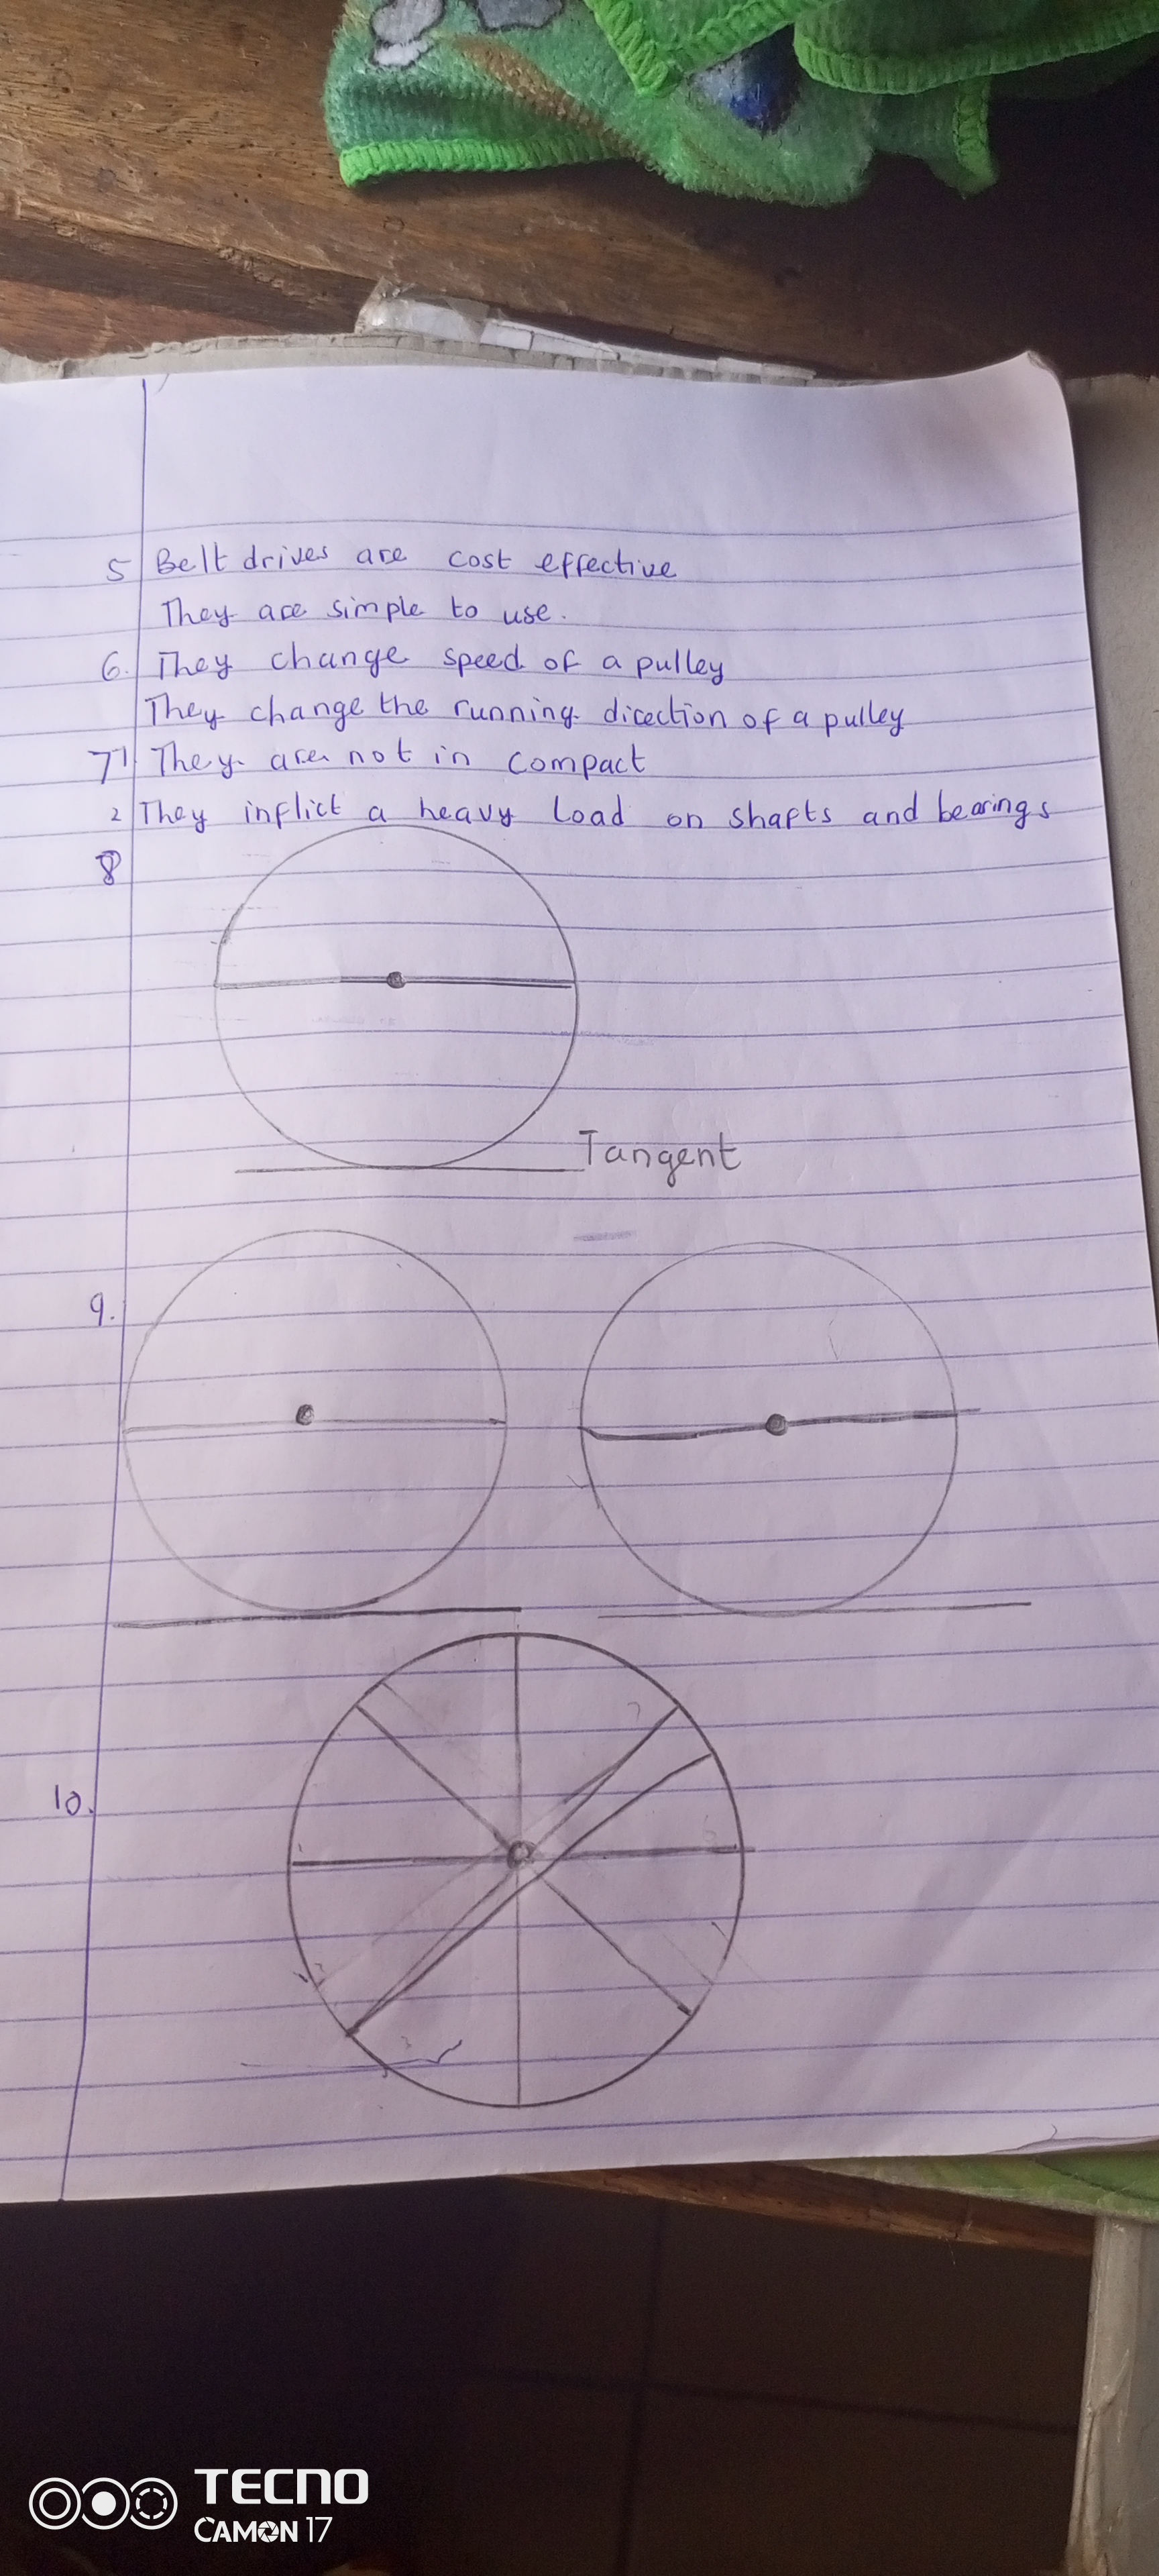 5 Belt drives are cost effective
They are simple to use.
6. They change speed of a pulley
They change the running direction of a pulley
7 1 They are not in compact
2 They inflict a heavy load on shafts and bearings
8
Tangent
9.
10.
TECNO
CAMON 17